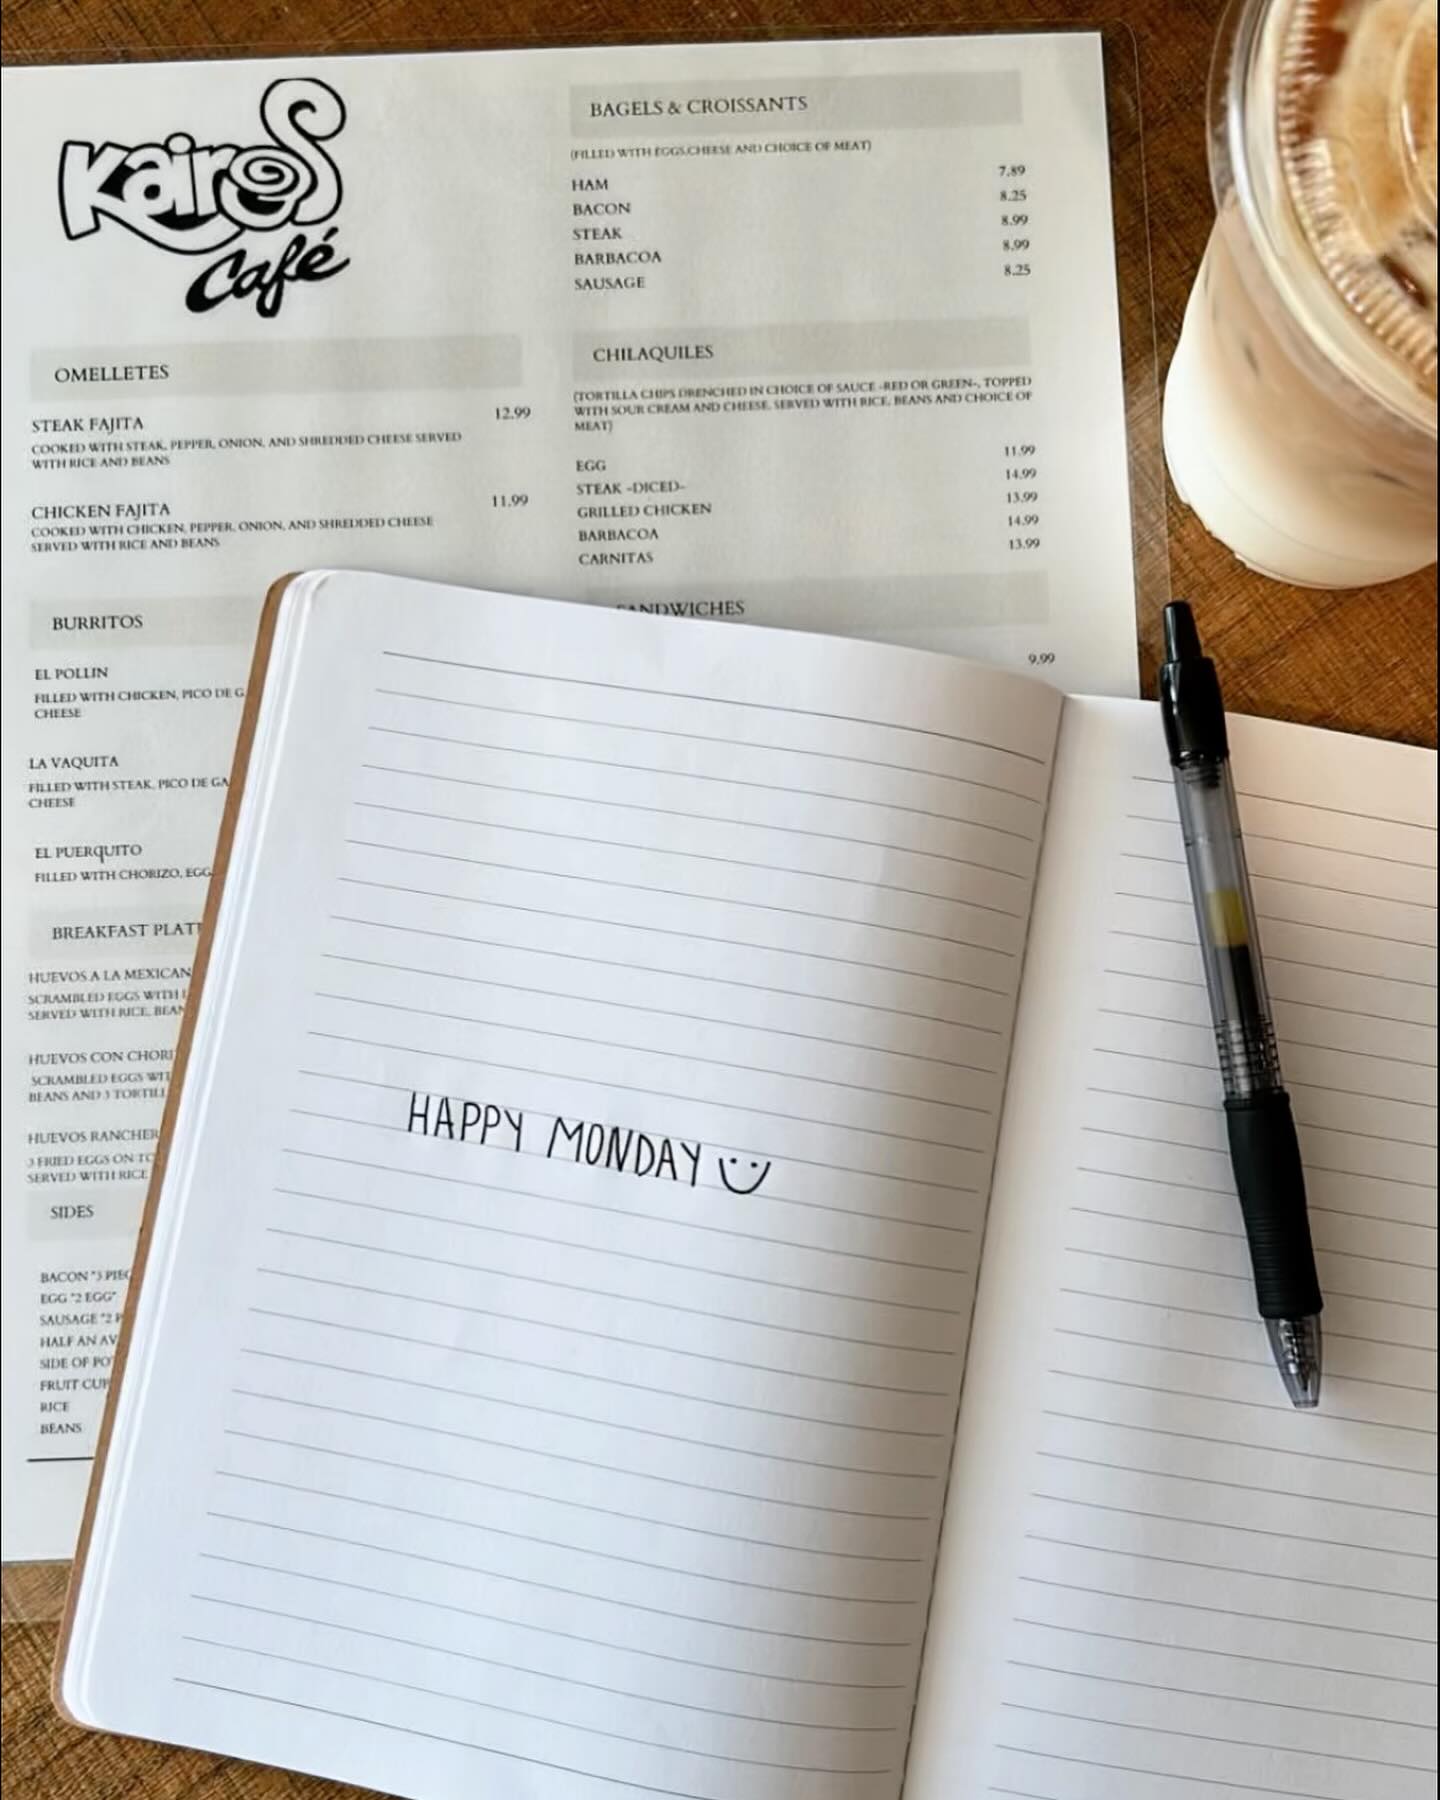 Kairos
Café
OMELLETES
STEAK FAJITA 12.99
COOKED WITH STEAK, PEPPER, ONION, AND SHREDDED CHEESE SERVED
WITH RICE AND BEANS
CHICKEN FAJITA 11.99
COOKED WITH CHICKEN, PEPPER, ONION, AND SHREDDED CHEESE
SERVED WITH RICE AND BEANS
BURRITOS
EL POLLIN
FILLED WITH CHICKEN, PICO DE G
CHEESE
LA VAQUITA
FILLED WITH STEAK, PICO DE GA
CHEESE
EL PUERQUITO
FILLED WITH CHORIZO, EGG
BREAKFAST PLAT
HUEVOS A LA MEXICAN
SCRAMBLED EGGS WITH
SERVED WITH RICE, BEAN
HUEVOS CON CHORI
SCRAMBLED EGGS WIT
BEANS AND 3 TORTILL
HUEVOS RANCHER
3 FRIED EGGS ON TO
SERVED WITH RICE
SIDES
BACON "3 PIEC
EGG "2 EGG"
SAUSAGE "2 P
HALF AN AV
SIDE OF PO
FRUIT CUP
RICE
BEANS
BAGELS & CROISSANTS
(FILLED WITH EGGS,CHEESE AND CHOICE OF MEAT)
HAM 7.89
BACON 8.25
STEAK 8.99
BARBACOA 8.99
SAUSAGE 8.25
CHILAQUILES
(TORTILLA CHIPS DRENCHED IN CHOICE OF SAUCE -RED OR GREEN-, TOPPED
WITH SOUR CREAM AND CHEESE, SERVED WITH RICE, BEANS AND CHOICE OF
MEAT)
EGG 11.99
STEAK -DICED- 14.99
GRILLED CHICKEN 13.99
BARBACOA 14.99
CARNITAS 13.99
SANDWICHES
9.99
HAPPY MONDAY